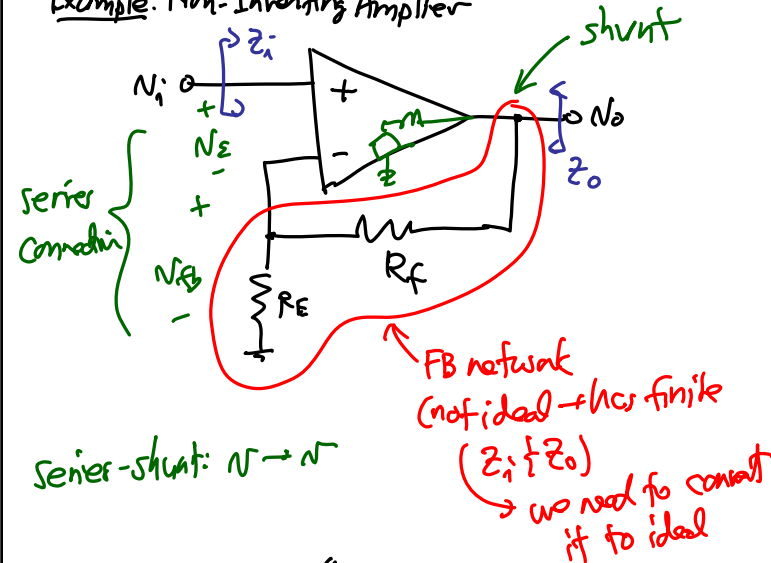 Example: Non-Inverting Amplifier
shunt
Zi
Ni
+
Nε
-
+
-
No
Zo
series
connection
+
Nfb
-
Rf
RE
FB network
(not ideal → has finite
(Zi & Zo)
→ we need to convert
it to ideal
series-shunt: N → N